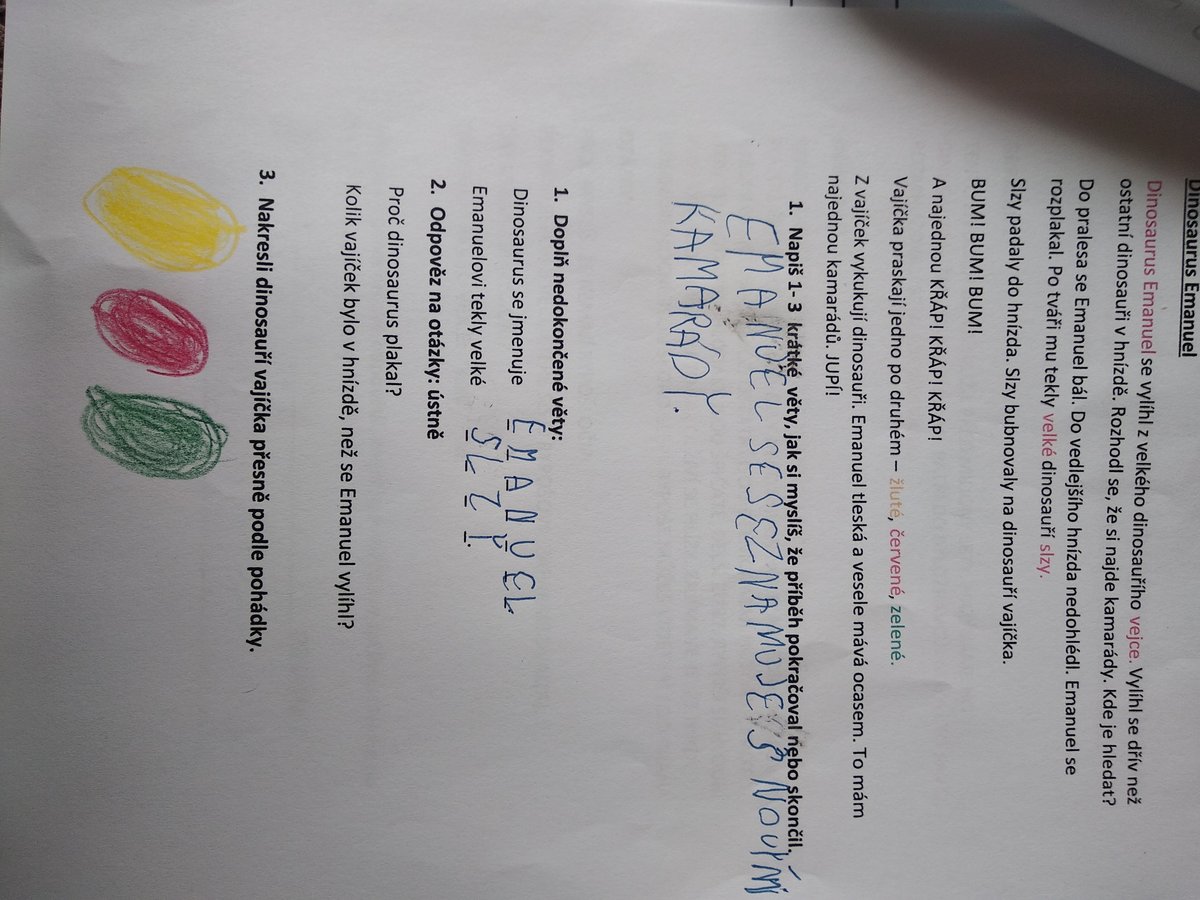 Dinosaurus Emanuel
Dinosaurus Emanuel se vylíhl z velkého dinosauřího vejce. Vylíhl se dřív než
ostatní dinosauři v hnízdě. Rozhodl se, že si najde kamarády. Kde je hledat?
Do pralesa se Emanuel bál. Do vedlejšího hnízda nedohlédl. Emanuel se
rozplakal. Po tváři mu tekly velké dinosauří slzy.
Slzy padaly do hnízda. Slzy bubnovaly na dinosauří vajíčka.
BUM! BUM! BUM!
A najednou KŘÁP! KŘÁP! KŘÁP!
Vajíčka praskají jedno po druhém – žluté, červené, zelené.
Z vajíček vykukují dinosauři. Emanuel tleská a vesele mává ocasem. To mám
najednou kamarádů. JUPÍ!
1. Napiš 1- 3 krátké věty, jak si myslíš, že příběh pokračoval nebo skončil.
EMANUEL SE SEZNAMUJE S NOVÝMI
KAMARÁDY.
1. Doplň nedokončené věty:
Dinosaurus se jmenuje EMANUEL
Emanuelovi tekly velké SLZY.
2. Odpověz na otázky: ústně
Proč dinosaurus plakal?
Kolik vajíček bylo v hnízdě, než se Emanuel vylíhl?
3. Nakresli dinosauří vajíčka přesně podle pohádky.